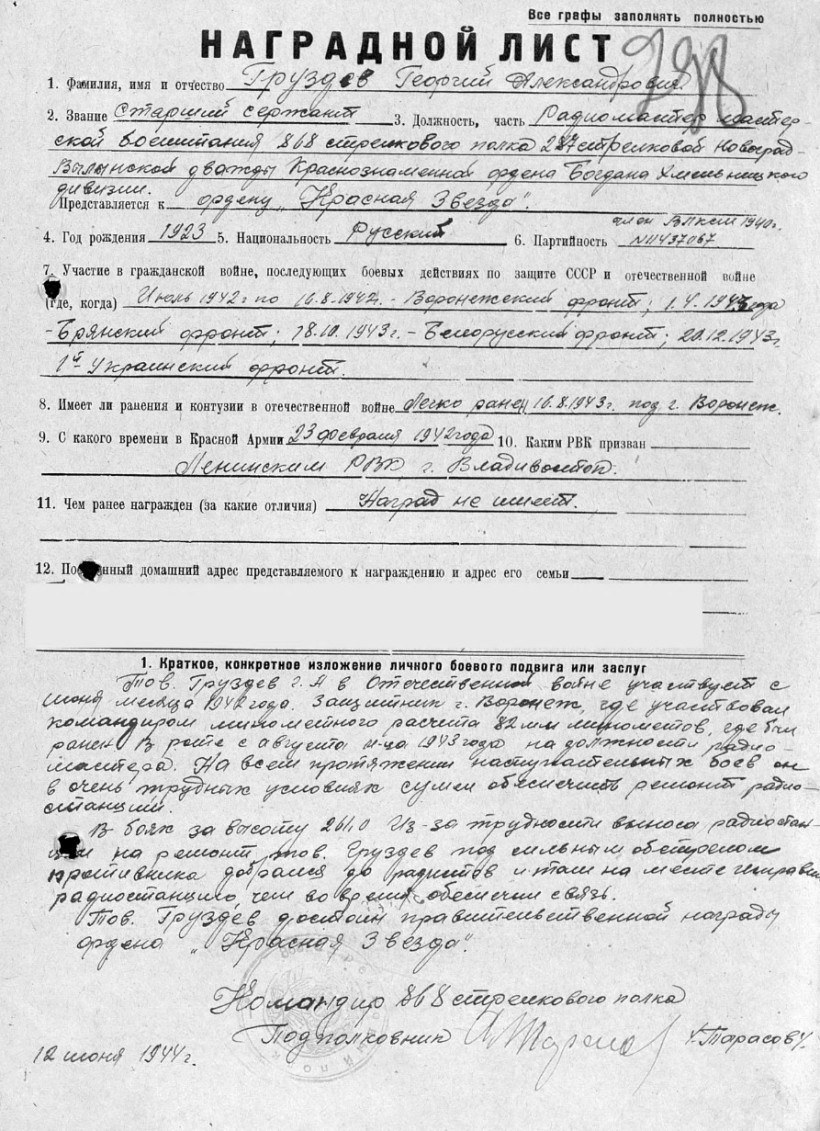 Все графы заполнять полностью
НАГРАДНОЙ ЛИСТ
1. Фамилия, имя и отчество Груздев Георгий Александрович
2. Звание Старший сержант 3. Должность, часть Радиомастер мастер-
ской 868 стрелкового полка 287 стрелковой Новоград-
Волынской дважды Краснознаменной ордена Богдана Хмельницкого
дивизии.
Представляется к ордену „Красная Звезда".
член ВЛКСМ 1940г.
4. Год рождения 1923 5. Национальность Русский 6. Партийность
7. Участие в гражданской войне, последующих боевых действиях по защите СССР и отечественной войне
(где, когда) Июль 1942г по 16.8.1942. - Воронежский фронт; 1.4.1943года
- Брянский фронт; 18.10.1943г. - Белорусский фронт; 20.12.1943г.
1й Украинский фронт.
8. Имеет ли ранения и контузии в отечественной войне Легко ранен 16.8.1943г. под г. Воронеж.
9. С какого времени в Красной Армии 23 февраля 1942года 10. Каким РВК призван
Ленинским РВК г. Владивосток.
11. Чем ранее награжден (за какие отличия) Наград не имеет.
12. По нный домашний адрес представляемого к награждению и адрес его семьи
1. Краткое, конкретное изложение личного боевого подвига или заслуг
Тов. Груздев Г.А в Отечественной войне участвует с
июня месяца 1942года. Защитник г. Воронеж, где участвовал
командиром минометного расчета 82мм минометов, где был
ранен. В роте с августа м-ца 1943года на должности радио-
мастера. На всем протяжении наступательных боев он
в очень трудных условиях сумел обеспечить ремонт радио-
станций.
В боях за высоту 261.0 Из-за трудности выноса радиостан-
ции на ремонт тов. Груздев под сильным обстрелом
противника добрался до радистов и там на месте исправил
радиостанцию, чем во время обеспечил связь.
Тов. Груздев достоин правительственной награды
ордена „Красная Звезда".
Командир 868 стрелкового полка
Подполковник /Тарасов/.
12 июня 1944г.